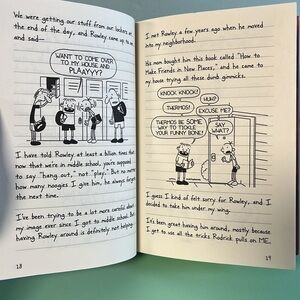 We were getting our stuff from our lockers at
the end of the day, and Rowley came up to me
and said—
WANT TO COME OVER
TO MY HOUSE AND
PLAAYYY?
I have told Rowley at least a billion times that
now that we're in middle school, you're supposed
to say "hang out," not "play." But no matter
how many noogies I give him, he always forgets
the next time.
I've been trying to be a lot more careful about
my image ever since I got to middle school. But
having Rowley around is definitely not helping.
18
I met Rowley a few years ago when he moved
into my neighborhood.
His mom bought him this book called "How to
Make Friends in New Places," and he came to
my house trying all these dumb gimmicks.
KNOCK KNOCK!
HUH?
THERMOS!
EXCUSE ME?
THERMOS BE SOME WAY
TO TICKLE
YOUR FUNNY BONE!
SAY
WHAT?
I guess I kind of felt sorry for Rowley, and I
decided to take him under my wing.
It's been great having him around, mostly because
I get to use all the tricks Rodrick pulls on ME.
19